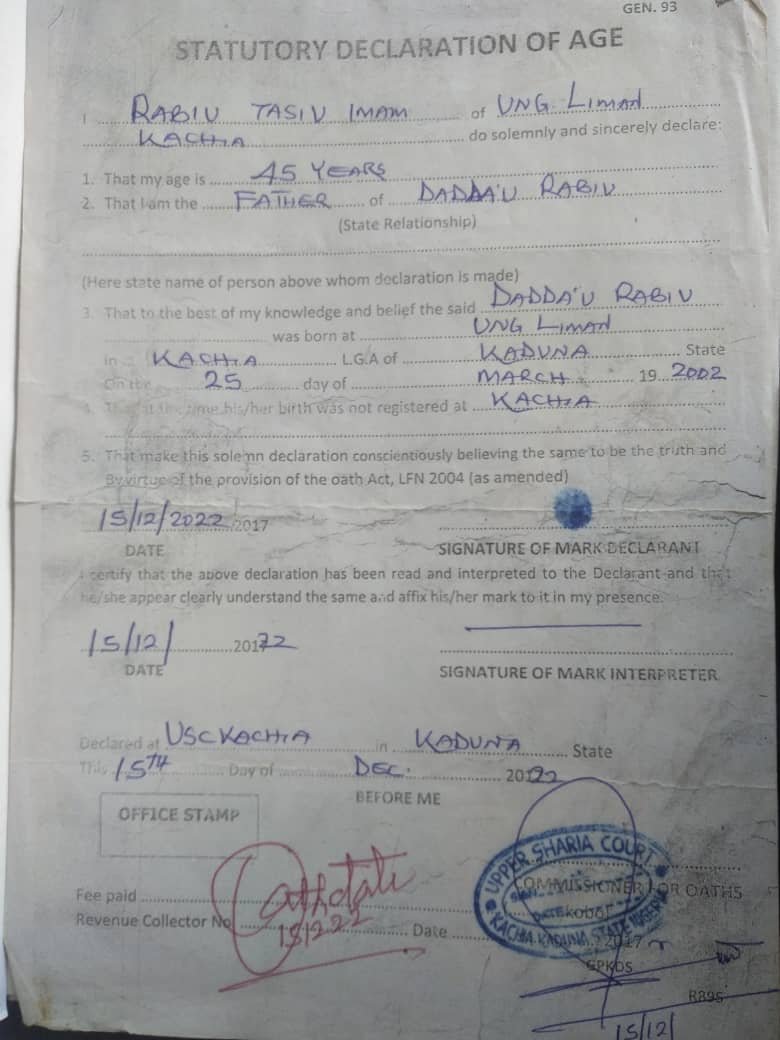 GEN. 93
STATUTORY DECLARATION OF AGE
I RABIU TASIU IMAM of UNG LIMAN
KACHIA do solemnly and sincerely declare:
1. That my age is 45 YEARS
2. That I am the FATHER of DADDA'U RABIU
(State Relationship)
(Here state name of person above whom declaration is made)
3. That to the best of my knowledge and belief the said DADDA'U RABIU
was born at UNG LIMAN
in KACHIA L.G.A of KADUNA State
On the 25 day of MARCH 19 2002
4. That at the time his/her birth was not registered at KACHIA
5. That make this solemn declaration conscientiously believing the same to be the truth and
By virtue of the provision of the oath Act, LFN 2004 (as amended)
15/12/2022 2017
DATE SIGNATURE OF MARK DECLARANT
I certify that the above declaration has been read and interpreted to the Declarant and that
he/she appear clearly understand the same and affix his/her mark to it in my presence.
15/12/ 2022
DATE SIGNATURE OF MARK INTERPRETER
Declared at USC KACHIA in KADUNA State
This 15TH Day of DEC. 2022
BEFORE ME
OFFICE STAMP
UPPER SHARIA COURT
COMMISSIONER FOR OATHS
SIGN
DATE
KACHIA KADUNA STATE NIGERIA
Fee paid
Revenue Collector No 151222 Date 2017
GPKDS
R895
15/12/